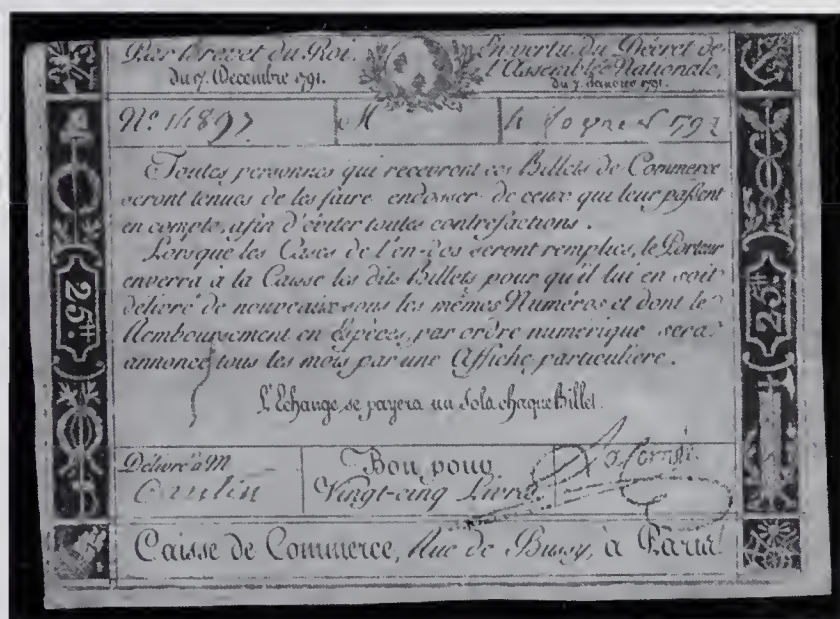 Par brevet du Roi.
du 17. Décembre 1791.
En vertu du Décret de
l'Assemblée Nationale,
du 7. Janvier 1791.
No. 14897
M
Toutes personnes qui recevront ces Billets de Commerce
seront tenues de les faire endosser de ceux qui leur passent
en compte, afin d'éviter toutes contrefactions.
Lorsque les Cases de l'en-dos seront remplies, le Porteur
enverra à la Caisse les dits Billets pour qu'il lui en soit
délivré de nouveaux sous les mêmes Numéros et dont le
Remboursement en Espèces, par ordre numérique sera
annoncé tous les mois par une Affiche particulière.
L'Echange se payera un Sol à chaque Billet.
25#
25#
Délivré à M
Bon pour
Vingt-cinq Livres
Caisse de Commerce, Rue de Bussy, à Paris.